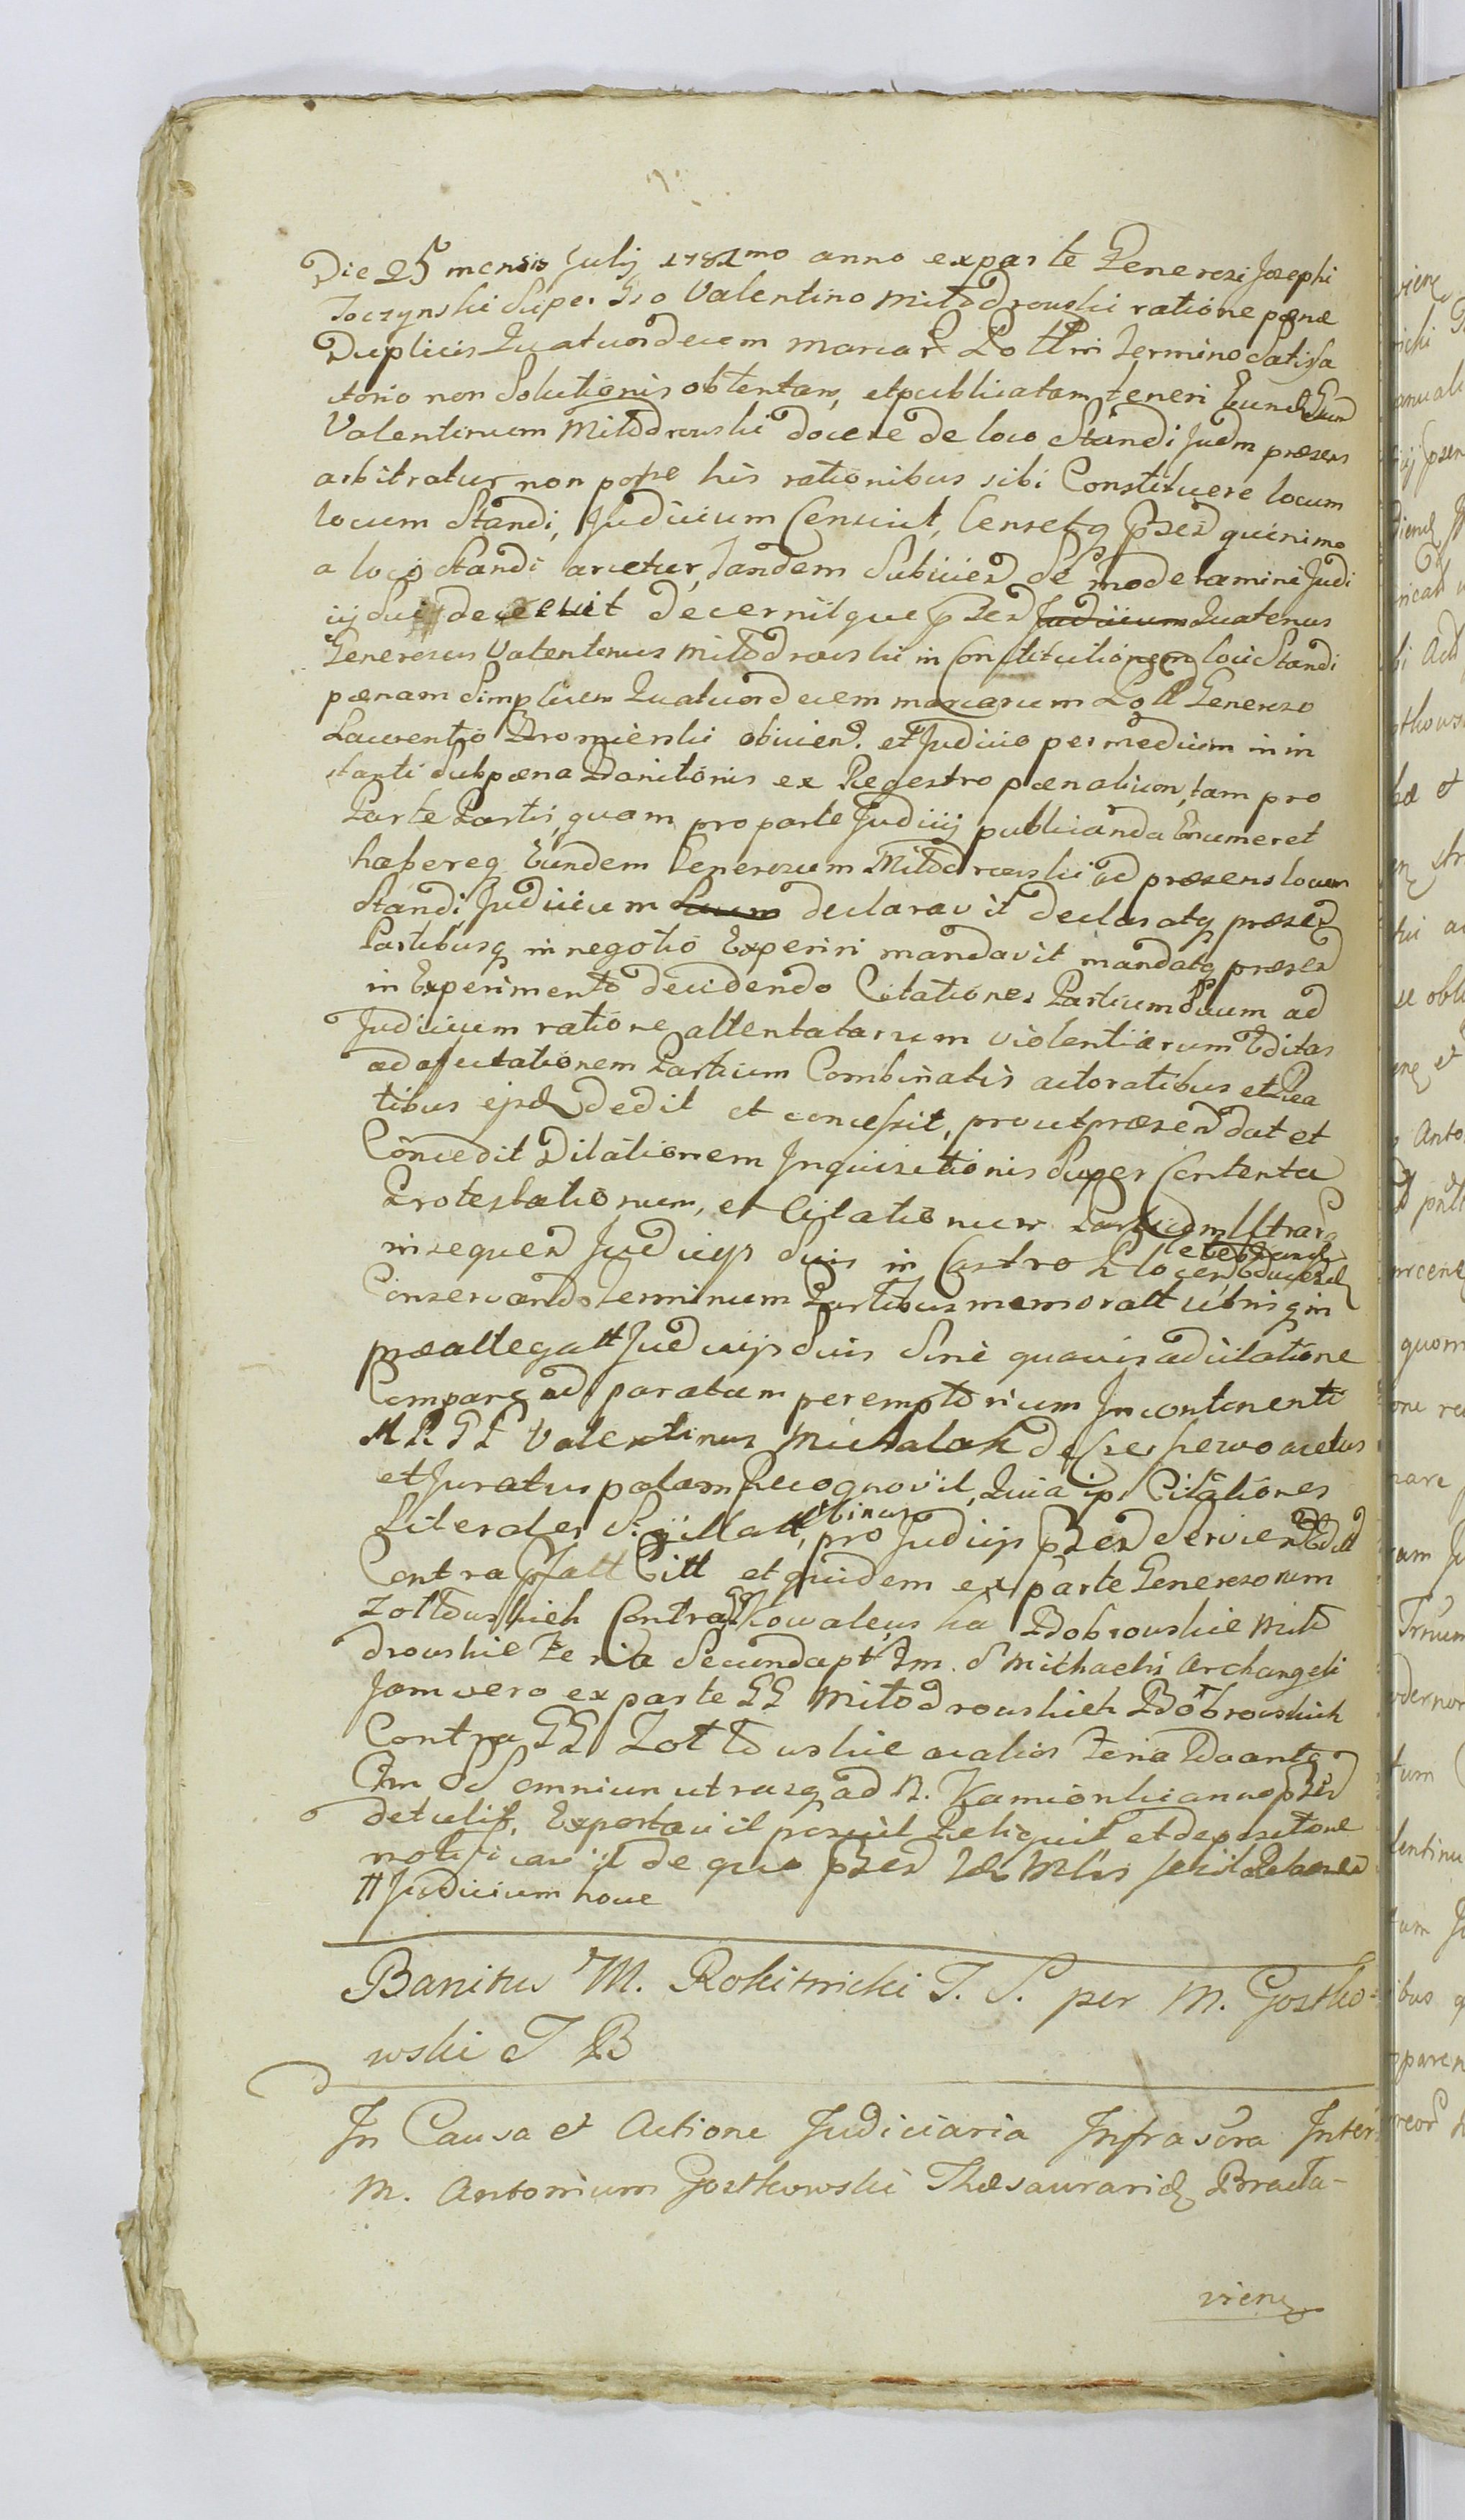 Die 25 mensis Julij 1781mo anno ex parte Generosi Josephi
Toczynski Super Gso Valentino Mitodrowski ratione pænæ
Duplicis Quatuordecem marcar Poll in Termino Satisfa
ctorio non Solutionis obtentam, et publicatam teneri Eund Gnum
Valentinum Mitodrowski docere de loco Standi Judm præsens
arbitratur non posse his rationibus sibi Constituere locum
locum Standi, Judicium Censuit, Censetq pzed quinimo
a loco Standi arcetur, tandem Subijcied se moderamini Judi
cij sui decrevit decernitque pzed Judicium Quatenus
Generosus Valentinus Mitodrowski in Constitutionem loci Standi
pænam Simplicem Quatuordecem marcarum Poll Generoso
Laurentio Dromierski obijcied. et Judicio per medium in in
stanti Sub pæna Banitionis ex Regestro pænalium, tam pro
Parte Partis, quam pro parte Judicij publicanda Enumeret
habereq Eundem Generosum Mitodrowski ad præsens locum
Standi Judicium declaravit declaratq præzed
Partibusq in negotio Experiri mandavit mandatq præzed
in Experimento decidendo Citationes Partium Suum ad
Judicium ratione attentatarum violentiarum Editas
ad affectationem Partium Combinatis actoratibus et Rea
tibus ejsd dedit et concessit, prout præzed dat et
Concedit Dilationem Inquisitionis Super Contenta
Protestationum, et Citationum Partium Utrarq
in sequed Judicijs Suis in Castro
Conservando terminum Partibus memoratt utrisq in
præallegatt Judicijs Suis Sine quavis adcitatione
Comparq ad paratum peremptorium Incontinenti
M R G T Valentinus Michalak de servo acetus
et Juratus palam Recognovit, Quia ip Citationes
Literales Sigillatt, binas pro Judicijs pzed Servied Edidit
Contra Citt et quidem ex parte Generosorum
Zołtowskich Contra GG Kowalewska Dobrowskie Mito
drowskie Feria Secunda pt Fm. S Michaelis Archangeli
Jam vero ex parte GG Mitodrowskich Dobrowskich
Contra GG Zołtowskie ac alios Feria 2da ante
Fm SS omnium utrasq ad B. Kamionki anno pzed
detulit, Exportavit posuit Reliquit et de positione
notificavit de quo pzed
tt Judicium houe
Banitus M. Rokitnicki T. S. per M. Gostko=
wski T B
In Causa et Actione Judiciaria Infrascra Inter
M. Antonium Gostkowski Thesaurarid Bracla-
vien